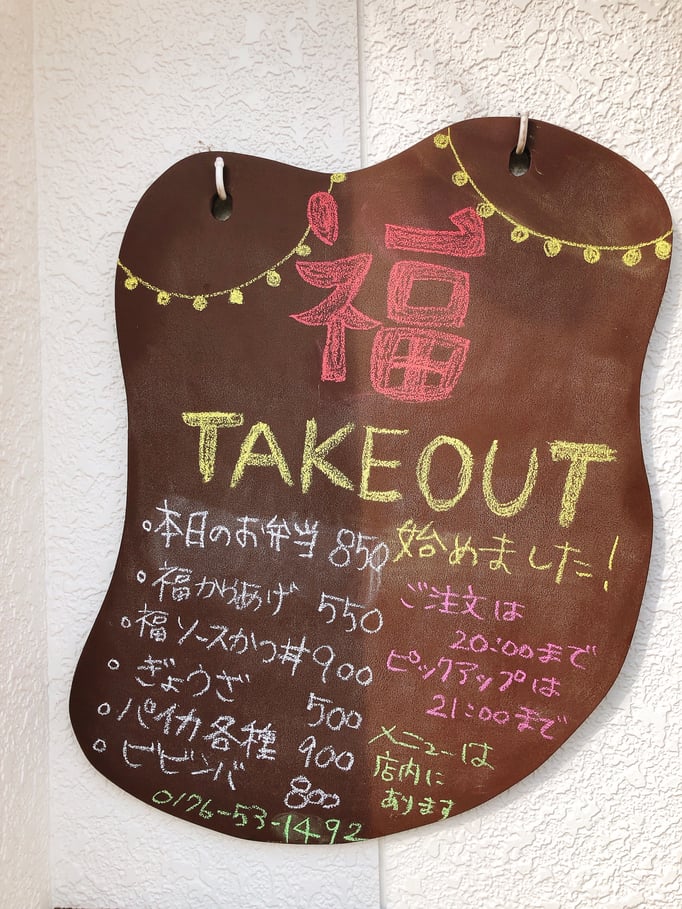 福
TAKEOUT
始めました!
・本日のお弁当 850
・福からあげ 550
・福ソースかつ丼 900
・ぎょうざ 500
・パイカ各種 900
・ビビンバ 800
0176-53-1492
ご注文は
20:00まで
ピックアップは
21:00まで
メニューは
店内に
あります